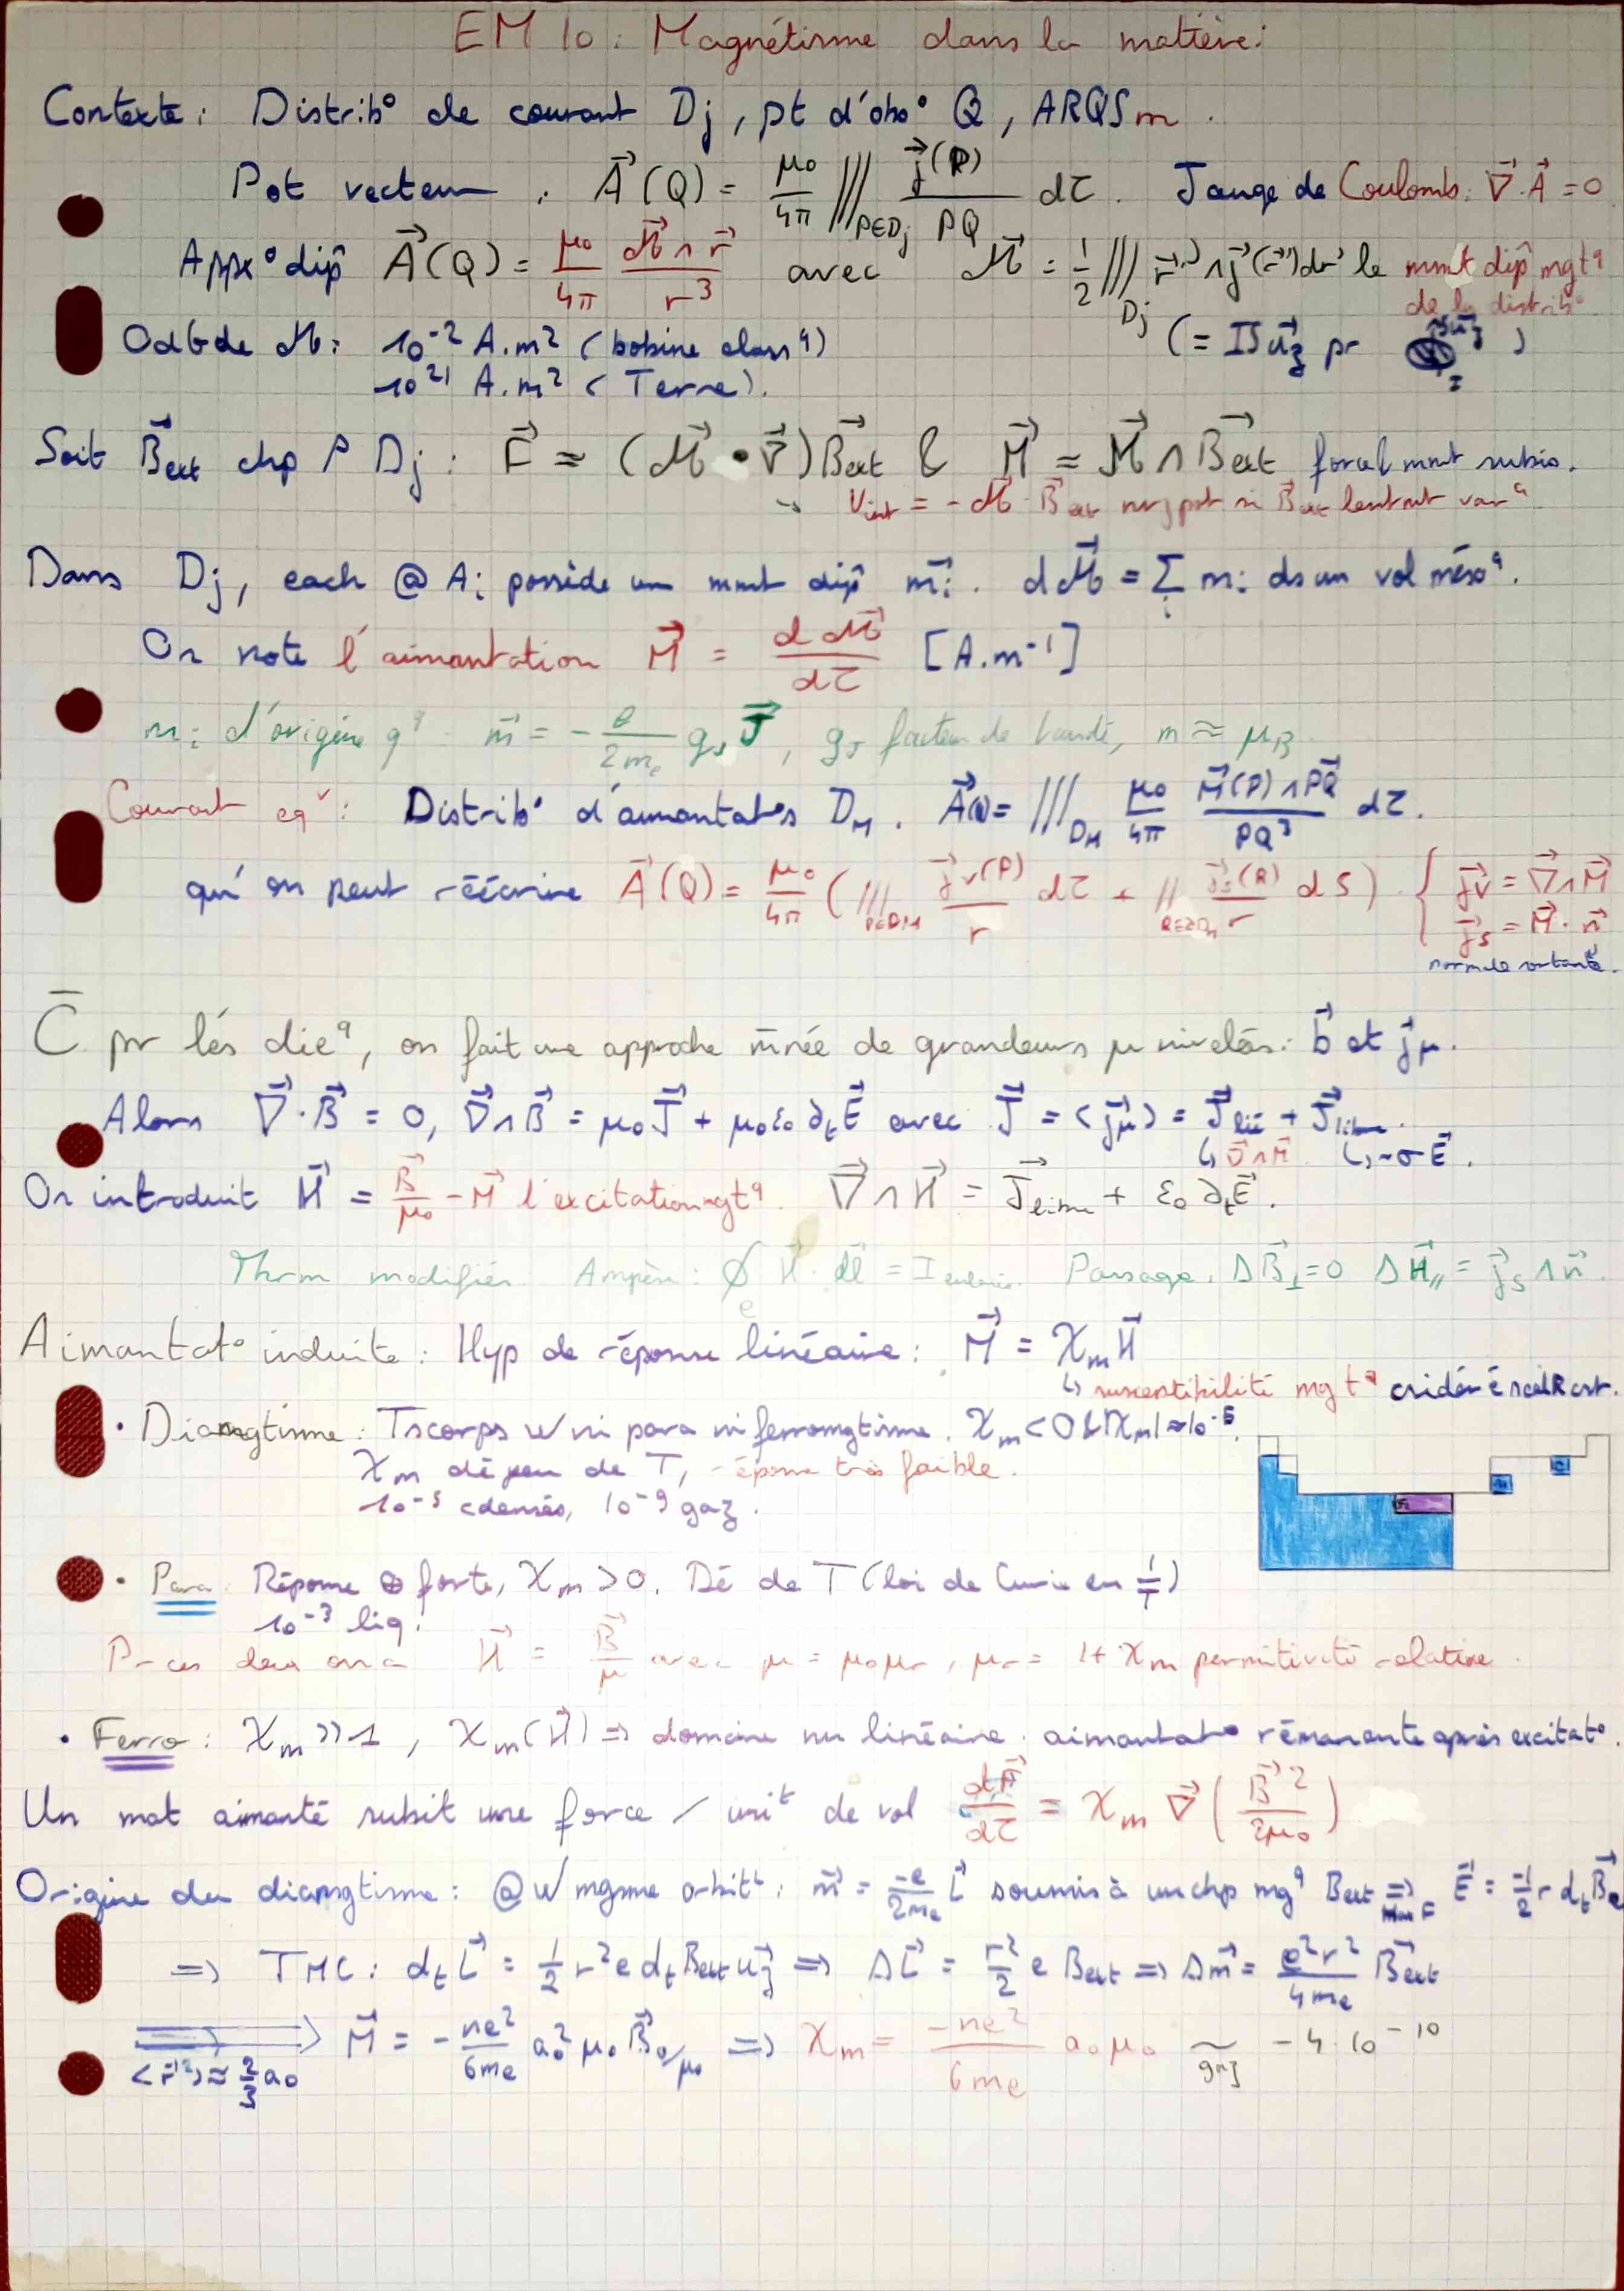 EM 10 : Magnétisme dans la matière :
Contexte : Distrib° de courant Dj, pt d'obs° Q, ARQSm.
Pot vecteur : A⃗(Q) = μ₀/4π ∭_{P∈Dj} j⃗(P)/PQ dτ. Jauge de Coulomb : ∇⃗·A⃗ = 0
Appx° dip A⃗(Q) = μ₀/4π ℳ⃗∧r⃗/r³ avec ℳ⃗ = 1/2 ∭_{Dj} r⃗'∧j⃗(r⃗')dr' le mmt dip mgt^q
de la distrib°
OdG de ℳ : 10⁻² A.m² (bobine class^q) (= ISu⃗z pr Su⃗z I)
10²¹ A.m² (Terre).
Soit B⃗ext chp Dj : F⃗ = (ℳ⃗•∇⃗)B⃗ext & M⃗ = ℳ⃗∧B⃗ext force & mmt subis.
→ Uint = -ℳ⃗·B⃗ext si B⃗ext lentmt var^q
Dans Dj, each @ Ai possède un mmt dip m⃗i. dℳ⃗ = Σ_i mi ds un vol méso^q.
On note l'aimantation M⃗ = dℳ⃗/dτ [A.m⁻¹]
mi d'origine q^q m⃗ = -e/2me gJ J⃗, gJ facteur de Landé, m ≈ μB.
Courant eq^v : Distrib° d'aimantat°s DM. A⃗(Q) = ∭_{DM} μ₀/4π M⃗(P)∧PQ⃗/PQ³ dτ.
qu'on peut réécrire A⃗(Q) = μ₀/4π (∭_{P∈DM} j⃗v(P)/r dτ + ∬_{R∈∂DM} j⃗s(R)/r dS) { j⃗v = ∇⃗∧M⃗
j⃗s = M⃗·n⃗
normale sortante.
C̄ pr lés die^q, on fait une approche m̄née de grandeurs μ nivelées : b⃗ et j⃗μ.
Alors ∇⃗·B⃗ = 0, ∇⃗∧B⃗ = μ₀J⃗ + μ₀ε₀∂tE⃗ avec J⃗ = <j⃗μ> = J⃗lié + J⃗libre.
↳ ∇⃗∧M⃗ ↳ ~σE⃗.
On introduit H⃗ = B⃗/μ₀ - M⃗ l'excitation mgt^q. ∇⃗∧H⃗ = J⃗libre + ε₀∂tE⃗.
Thrm modifiés Ampère : ∮_C H⃗·dl⃗ = I enlacé. Passage : ΔB⃗⊥=0 ΔH⃗// = j⃗s∧n⃗.
Aimantat° induite : Hyp de réponse linéaire : M⃗ = χmH⃗
↳ susceptibilité mgt^q csidéré scal R cst.
• Diamgtisme : Ts corps w/ ni para ni ferromgtisme. χm<0 & |χm|≈10⁻⁵.
χm dé peu de T, réponse très faible.
10⁻⁵ cdensés, 10⁻⁹ gaz.
• Para : Réponse ⊕ forte, χm>0. Dé de T (loi de Curie en 1/T)
10⁻³ liq.
Pr ces deux on a H⃗ = B⃗/μ avec μ = μ₀μr, μr = 1+χm permitivité relative.
• Ferro : χm>>1, χm(H⃗) => domaine nn linéaire. aimantat° rémanente après excitat°.
Un mat aimanté subit une force / unit^é de vol dF⃗/dτ = χm ∇⃗(B⃗²/2μ₀)
Origine du diamgtisme : @ w/ mgsme orbit^l : m⃗ = -e/2me L⃗ soumis à un chp mg^q Bext => Max F E⃗ = -1/2 r dtB⃗e
=> TMC : dtL⃗ = 1/2 r²e dtBext u⃗z => ΔL⃗ = r²/2 e Bext => Δm⃗ = e²r²/4me B⃗ext
=> <r⃗²>≈2/3 a₀ M⃗ = -ne²/6me a₀² μ₀ B⃗₀/μ₀ => χm = -ne²/6me a₀ μ₀ ~ gaz -4·10⁻¹⁰